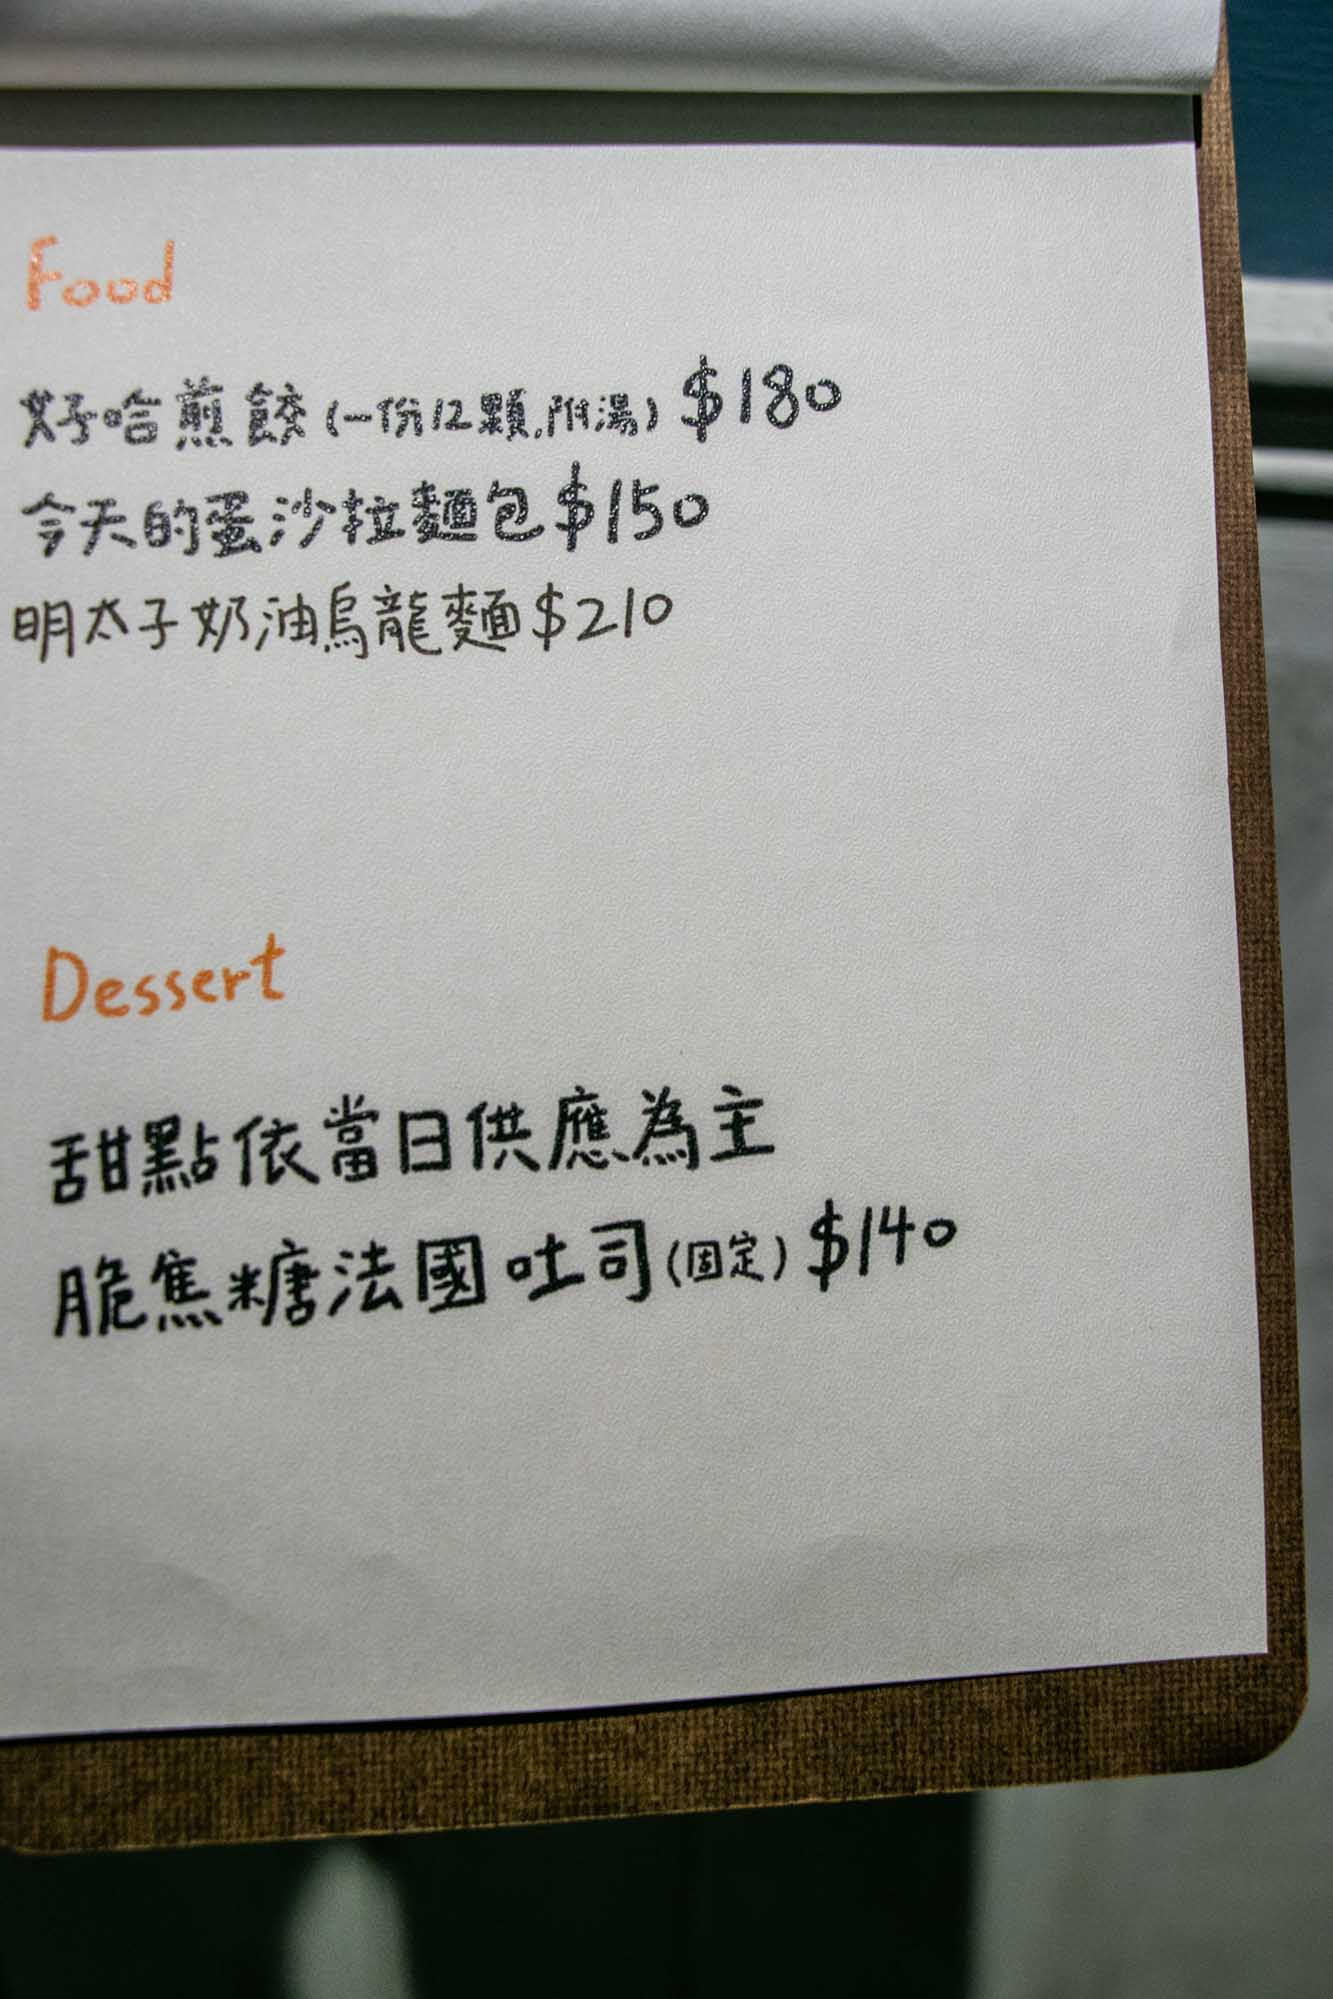 Food
好哈煎餃(一份12顆,附湯) $180
今天的蛋沙拉麵包$150
明太子奶油烏龍麵$210
Dessert
甜點依當日供應為主
脆焦糖法國吐司(固定) $140